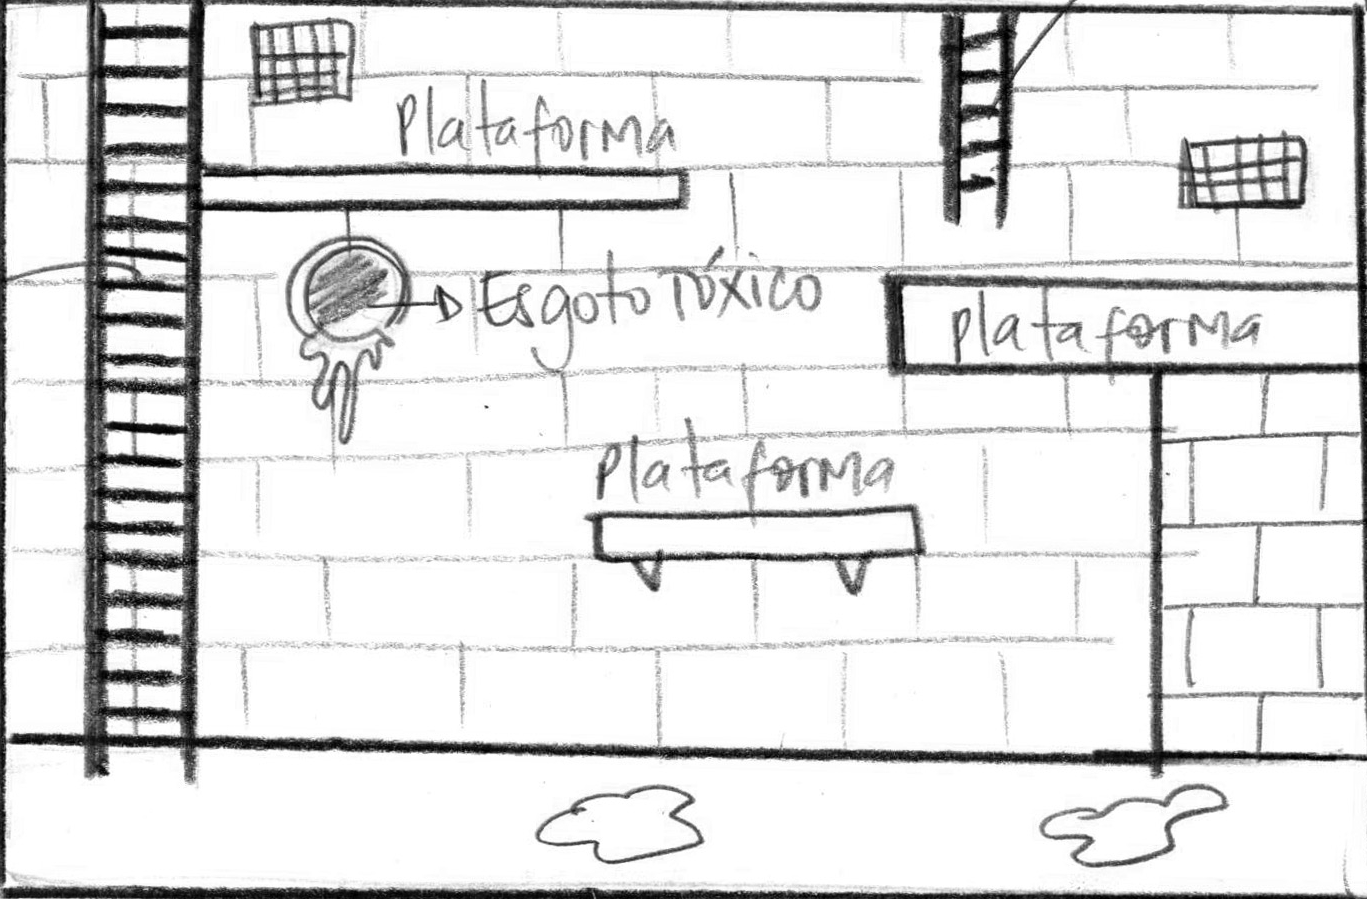 Plataforma
Esgoto Tóxico
Plataforma
Plataforma